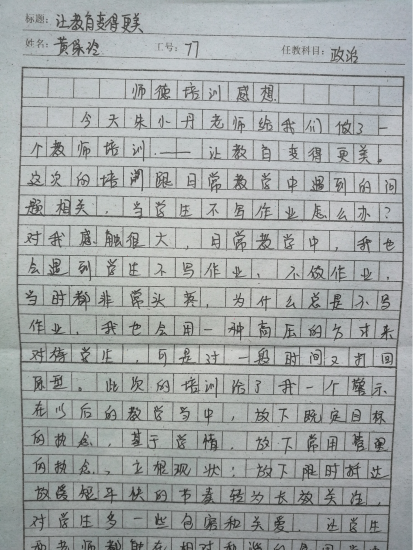 标题：让教育变得更美
姓名： 黄 工号： 77 任教科目：政治
师德培训感想
今天朱小丹老师给我们做了一
个教师培训——让教育变得更美。
这次的培训跟日常教学中遇到的问
题相关，当学生不写作业怎么办？
对我感触很大，日常教学中，我也
会遇到学生不写作业、不做作业，
当时都非常头疼，为什么总是不写
作业，我也会用一种高压的方式来
对待学生，可是过一段时间又打回
原型。此次的培训给了我一个警示
在以后的教学当中，放下既定目标
的执念，基于学情，放下常用管理
的执念、主根观状；放下限时抵达
放弃短平快的节奏转为长放关注，
对学生多一些包容和关爱。让学生